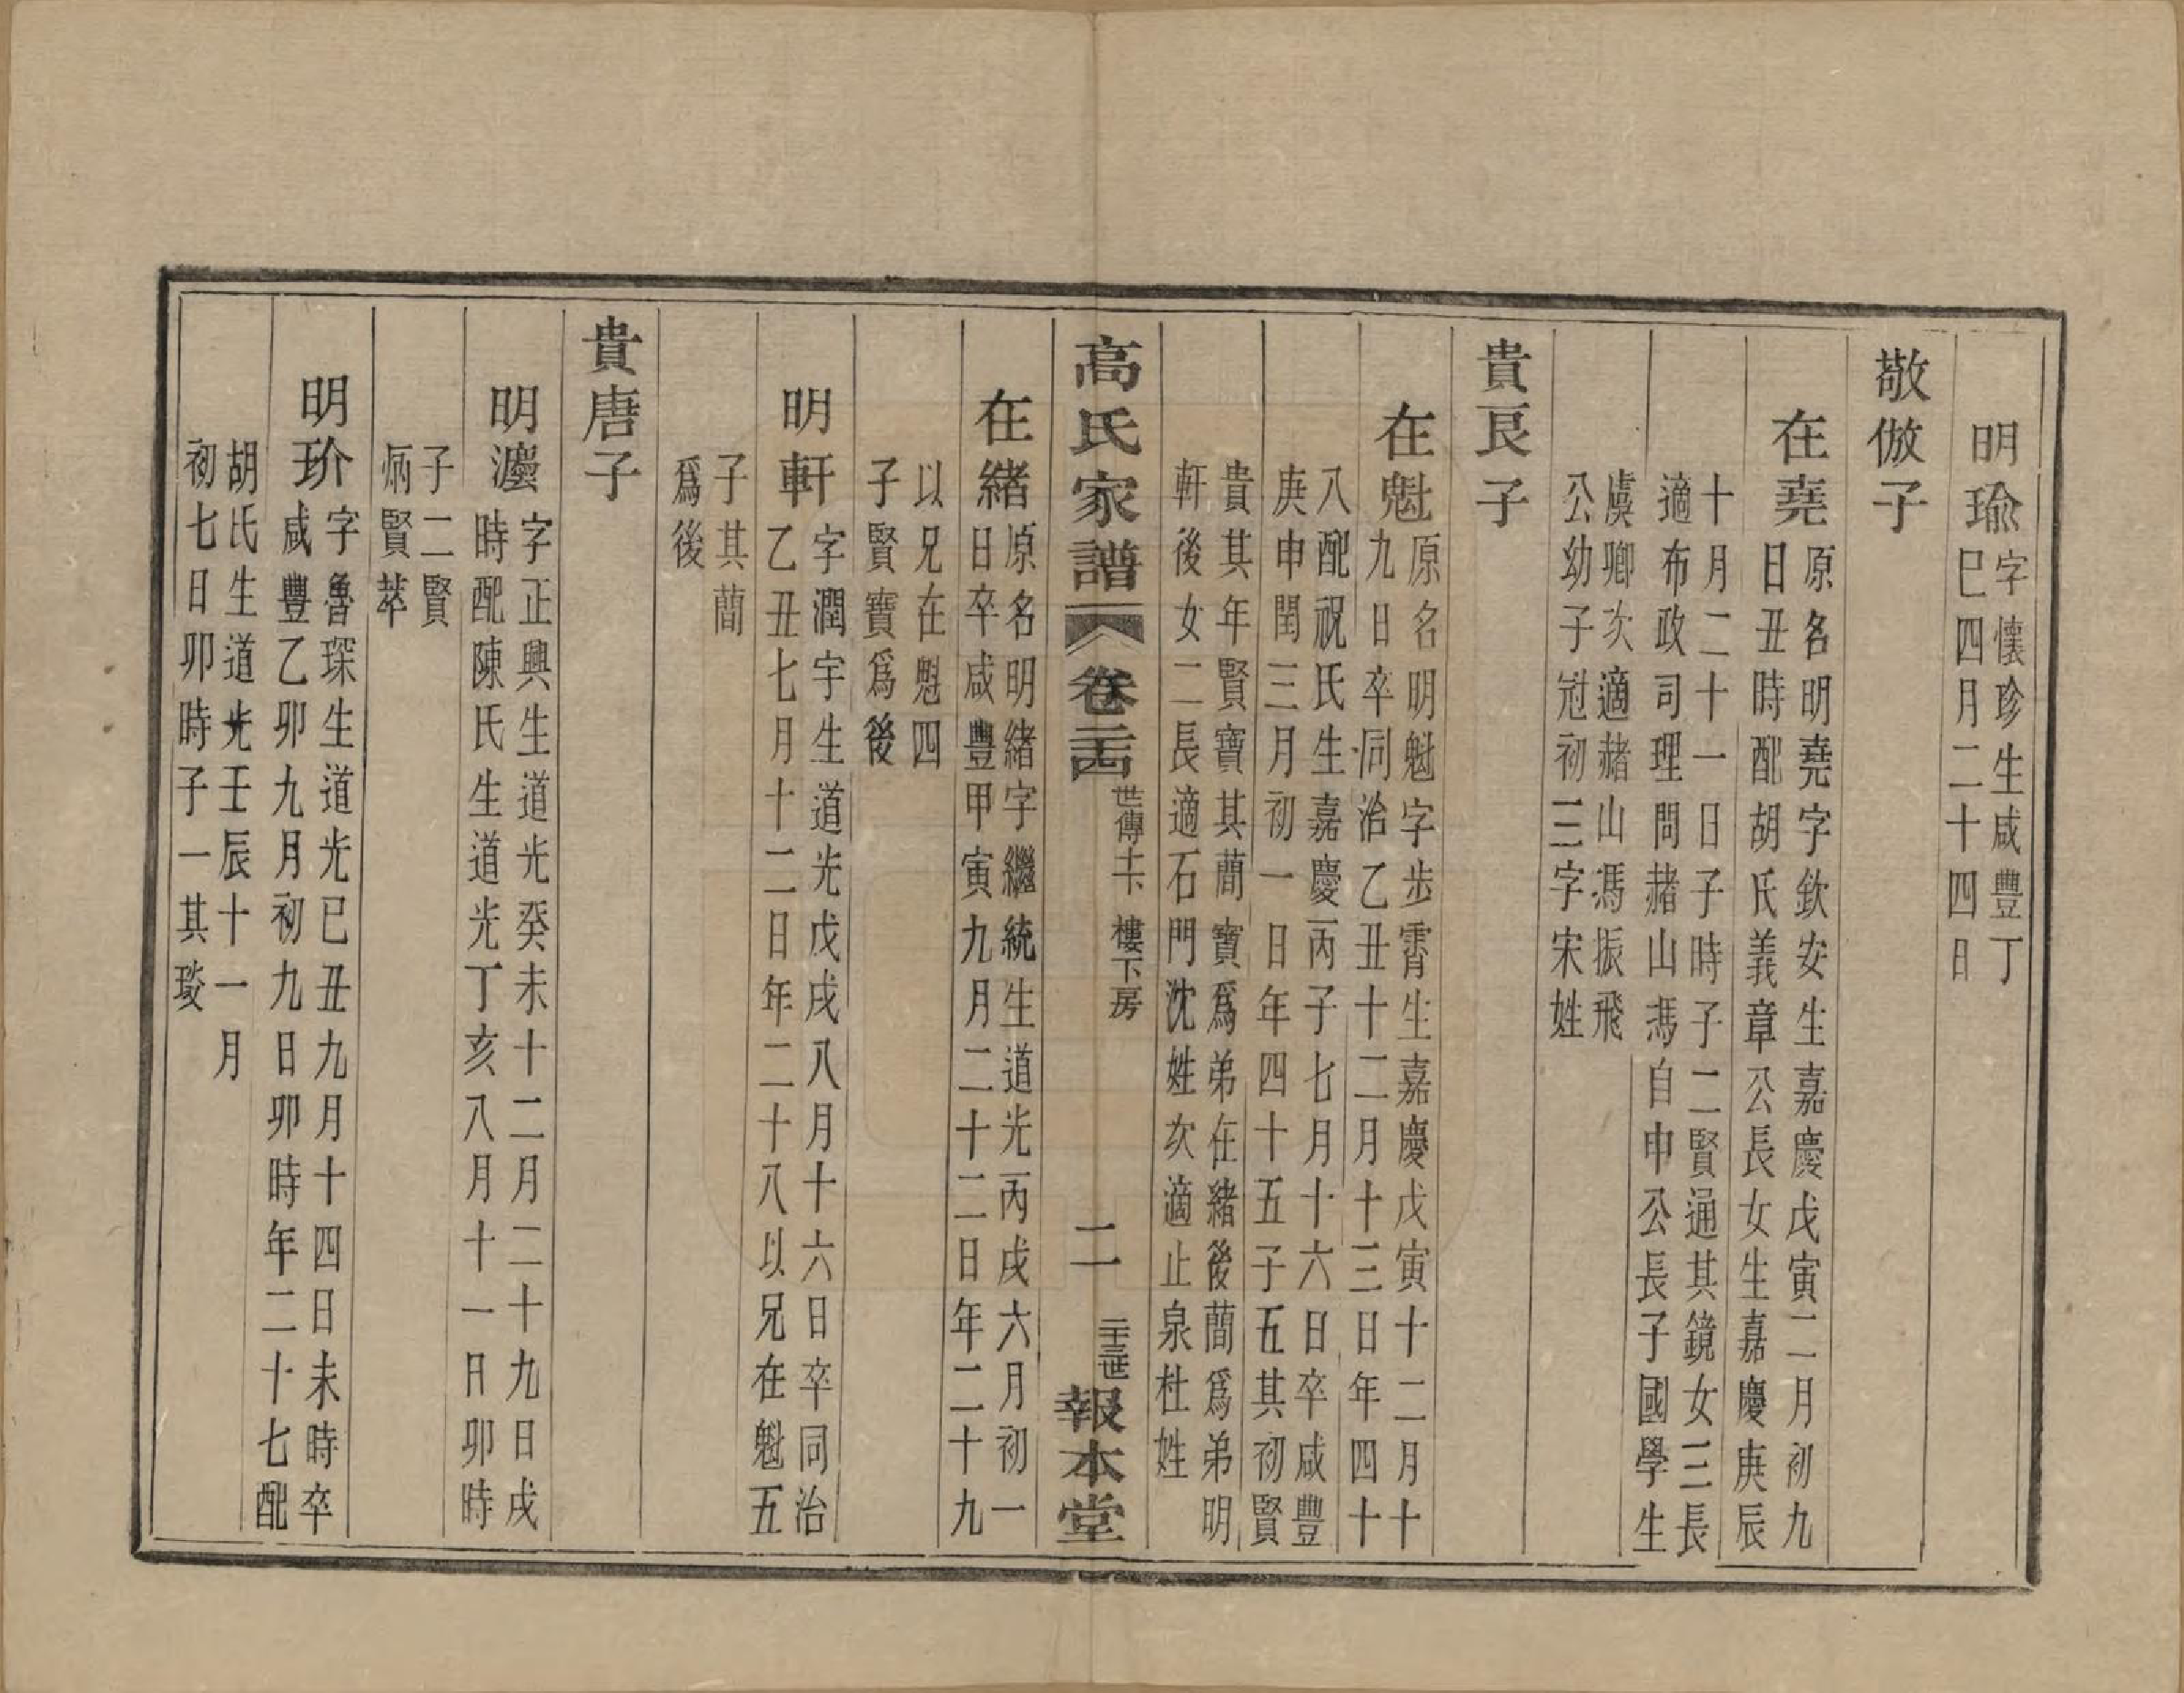 明瑜字懷珍生咸豐丁
巳四月二十四日
敬倣子
在堯原名明堯字欽安生嘉慶戊寅二月初九
日丑時配胡氏義章公長女生嘉慶庚辰
十月二十一日子時子二賢通其鏡女三長
適布政司理問赭山馮自申公長子國學生
虞卿次適赭山馮振飛
公幼子冠初三字宋姓
貴艮子
在魁原名明魁字步霄生嘉慶戊寅十二月十
九日卒同治乙丑十二月十三日年四十
八配祝氏生嘉慶丙子七月十六日卒咸豐
庚申閏三月初一日年四十五子五其初賢
貴其年賢寶其蕳寶爲弟在緒後蕳爲弟明
軒後女二長適石門沈姓次適止泉杜姓
高氏家譜 卷二十四 世傳十下 樓下房 二 二十三世 報本堂
在緒原名明緒字繼統生道光丙戌六月初一
日卒咸豐甲寅九月二十二日年二十九
以兄在魁四
子賢寶爲後
明軒字潤宇生道光戊戌八月十六日卒同治
乙丑七月十二日年二十八以兄在魁五
子其蕳
爲後
貴唐子
明瀍字正興生道光癸未十二月二十九日戌
時配陳氏生道光丁亥八月十一日卯時
子二賢
炳賢萃
明玠字魯琛生道光己丑九月十四日未時卒
咸豐乙卯九月初九日卯時年二十七配
胡氏生道光壬辰十一月
初七日卯時子一其琰